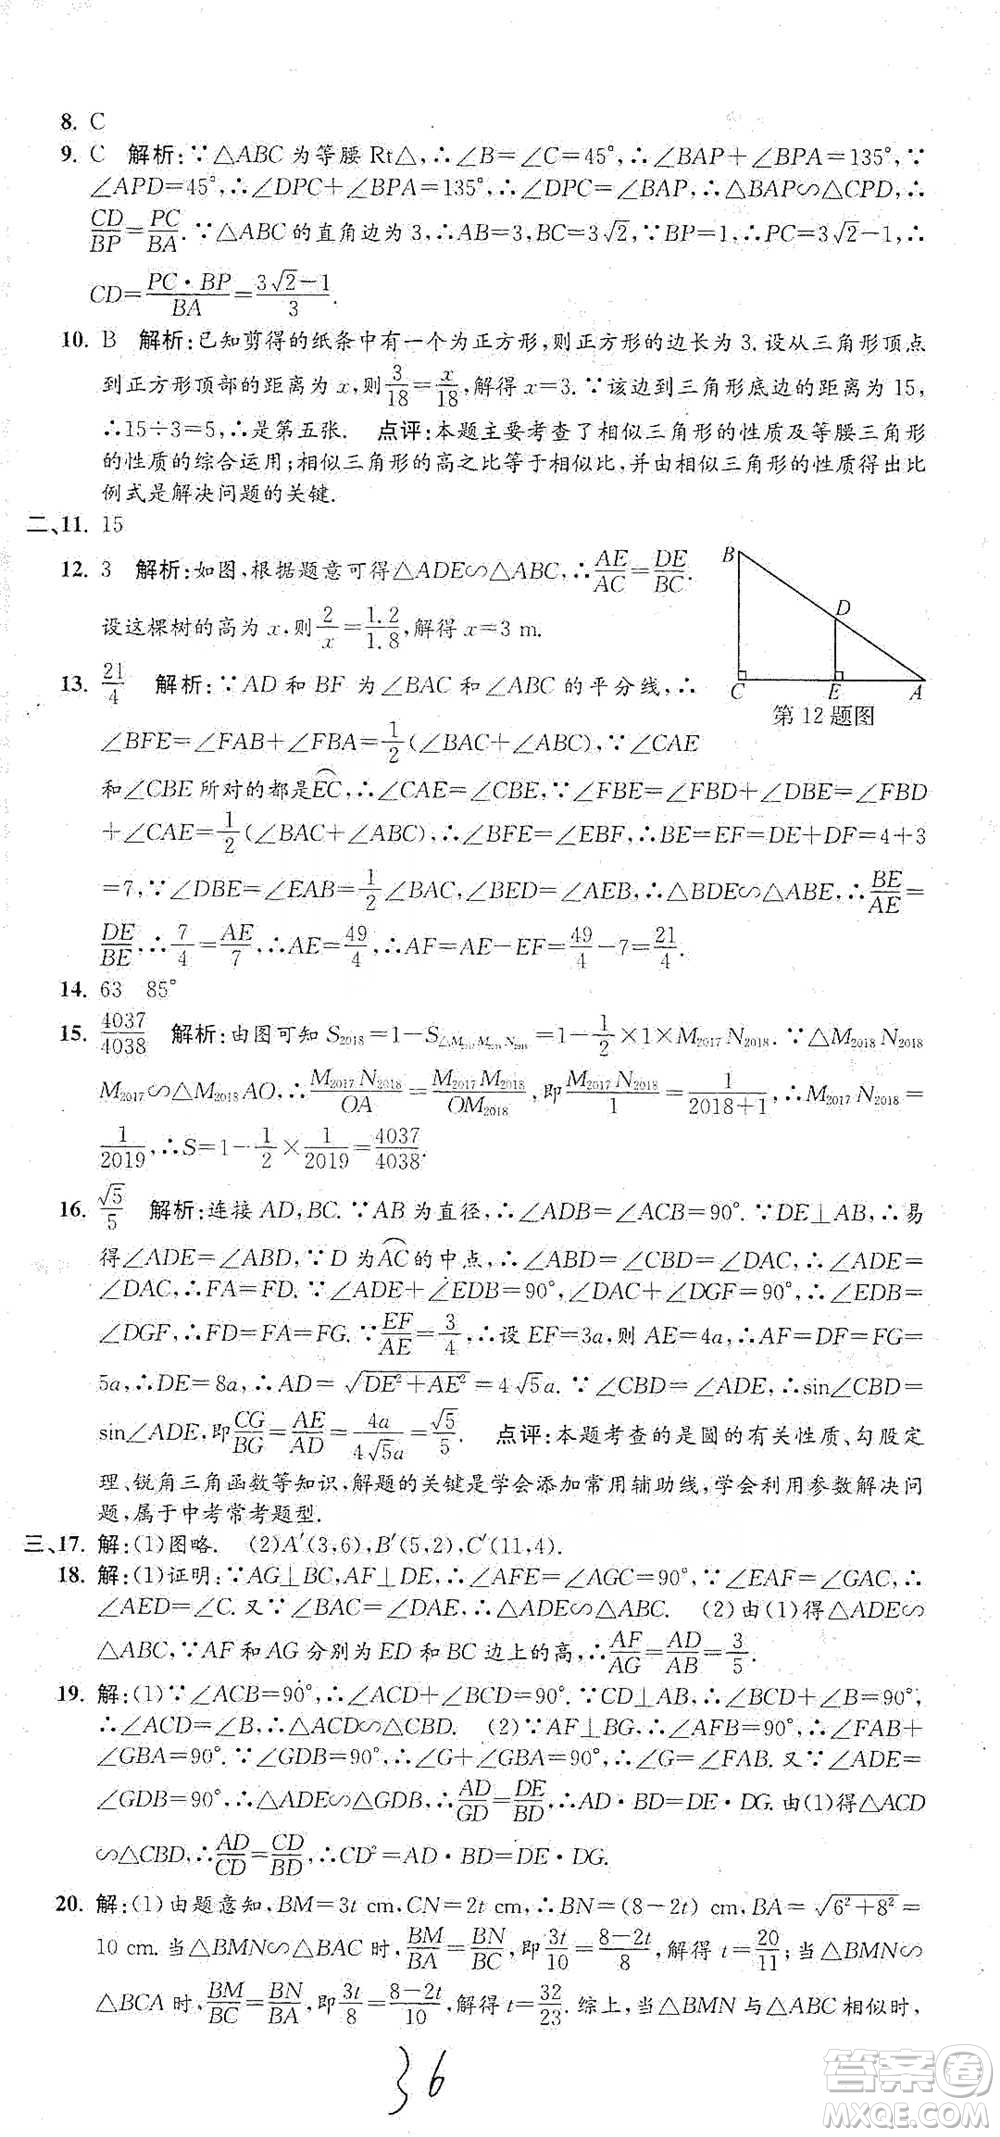 8. C
9. C 解析:∵△ABC 为等腰 Rt△,∴∠B=∠C=45°,∴∠BAP+∠BPA=135°,∵
∠APD=45°,∴∠DPC+∠BPA=135°,∴∠DPC=∠BAP,∴△BAP∽△CPD,∴
CD/BP=PC/BA.∵△ABC 的直角边为 3,∴AB=3,BC=3√2,∵BP=1,∴PC=3√2-1,∴
CD=PC·BP/BA=(3√2-1)/3.
10. B 解析:已知剪得的纸条中有一个为正方形,则正方形的边长为 3.设从三角形顶点
到正方形顶部的距离为 x,则3/18=x/18,解得 x=3.∵该边到三角形底边的距离为 15,
∴15÷3=5,∴是第五张. 点评:本题主要考查了相似三角形的性质及等腰三角形
的性质的综合运用;相似三角形的高之比等于相似比,并由相似三角形的性质得出比
例式是解决问题的关键.
二、11. 15
12. 3 解析:如图,根据题意可得△ADE∽△ABC,∴AE/AC=DE/BC.
设这棵树的高为 x,则2/x=1.2/1.8,解得 x=3 m.
B
D
C E A
第 12 题图
13. 21/4 解析:∵AD 和 BF 为∠BAC 和∠ABC 的平分线,∴
∠BFE=∠FAB+∠FBA=1/2(∠BAC+∠ABC),∵∠CAE
和∠CBE 所对的都是EC,∴∠CAE=∠CBE,∵∠FBE=∠FBD+∠DBE=∠FBD
+∠CAE=1/2(∠BAC+∠ABC),∴∠BFE=∠EBF,∴BE=EF=DE+DF=4+3
=7,∵∠DBE=∠EAB=1/2∠BAC,∠BED=∠AEB,∴△BDE∽△ABE,∴BE/AE=
DE/BE,∴7/4=AE/7,∴AE=49/4,∴AF=AE-EF=49/4-7=21/4.
14. 63 85°
15. 4037/4038 解析:由图可知 S₂₀₁₈=1-S△M₂₀₁₇M₂₀₁₈N₂₀₁₈=1-1/2×1×M₂₀₁₇N₂₀₁₈.∵△M₂₀₁₈N₂₀₁₈
M₂₀₁₇∽△M₂₀₁₈AO,∴M₂₀₁₇N₂₀₁₈/OA=M₂₀₁₇M₂₀₁₈/OM₂₀₁₈,即M₂₀₁₇N₂₀₁₈/1=1/(2018+1),∴M₂₀₁₇N₂₀₁₈=
1/2019,∴S=1-1/2×1/2019=4037/4038.
16. √5/5 解析:连接 AD,BC.∵AB 为直径,∴∠ADB=∠ACB=90°.∵DE⊥AB,∴易
得∠ADE=∠ABD,∵D 为AC的中点,∴∠ABD=∠CBD=∠DAC,∴∠ADE=
∠DAC,∴FA=FD.∵∠ADE+∠EDB=90°,∠DAC+∠DGF=90°,∴∠EDB=
∠DGF,∴FD=FA=FG.∵EF/AE=3/4,∴设 EF=3a,则 AE=4a,∴AF=DF=FG=
5a,∴DE=8a,∴AD=√(DE²+AE²)=4√5a.∵∠CBD=∠ADE,∴sin∠CBD=
sin∠ADE,即CG/BG=AE/AD=4a/4√5a=√5/5. 点评:本题考查的是圆的有关性质、勾股定
理、锐角三角函数等知识,解题的关键是学会添加常用辅助线,学会利用参数解决问
题,属于中考常考题型.
三、17. 解:(1)图略. (2)A′(3,6),B′(5,2),C′(11,4).
18. 解:(1)证明:∵AG⊥BC,AF⊥DE,∴∠AFE=∠AGC=90°,∵∠EAF=∠GAC,∴
∠AED=∠C.又∵∠BAC=∠DAE,∴△ADE∽△ABC. (2)由(1)得△ADE∽
△ABC,∵AF 和 AG 分别为 ED 和 BC 边上的高,∴AF/AG=AD/AB=3/5.
19. 解:(1)∵∠ACB=90°,∴∠ACD+∠BCD=90°.∵CD⊥AB,∴∠BCD+∠B=90°,
∴∠ACD=∠B,∴△ACD∽△CBD. (2)∵AF⊥BG,∴∠AFB=90°,∴∠FAB+
∠GBA=90°.∵∠GDB=90°,∴∠G+∠GBA=90°,∴∠G=∠FAB.又∵∠ADE=
∠GDB=90°,∴△ADE∽△GDB,∴AD/GD=DE/BD,∴AD·BD=DE·DG.由(1)得△ACD
∽△CBD,∴AD/CD=CD/BD,∴CD²=AD·BD=DE·DG.
20. 解:(1)由题意知,BM=3t cm,CN=2t cm,∴BN=(8-2t) cm,BA=√(6²+8²)=
10 cm.当△BMN∽△BAC 时,BM/BA=BN/BC,即3t/10=(8-2t)/8,解得 t=20/11;当△BMN∽
△BCA 时,BM/BC=BN/BA,即3t/8=(8-2t)/10,解得 t=32/23.综上,当△BMN 与△ABC 相似时,
36
答案卷
MXQE.COM